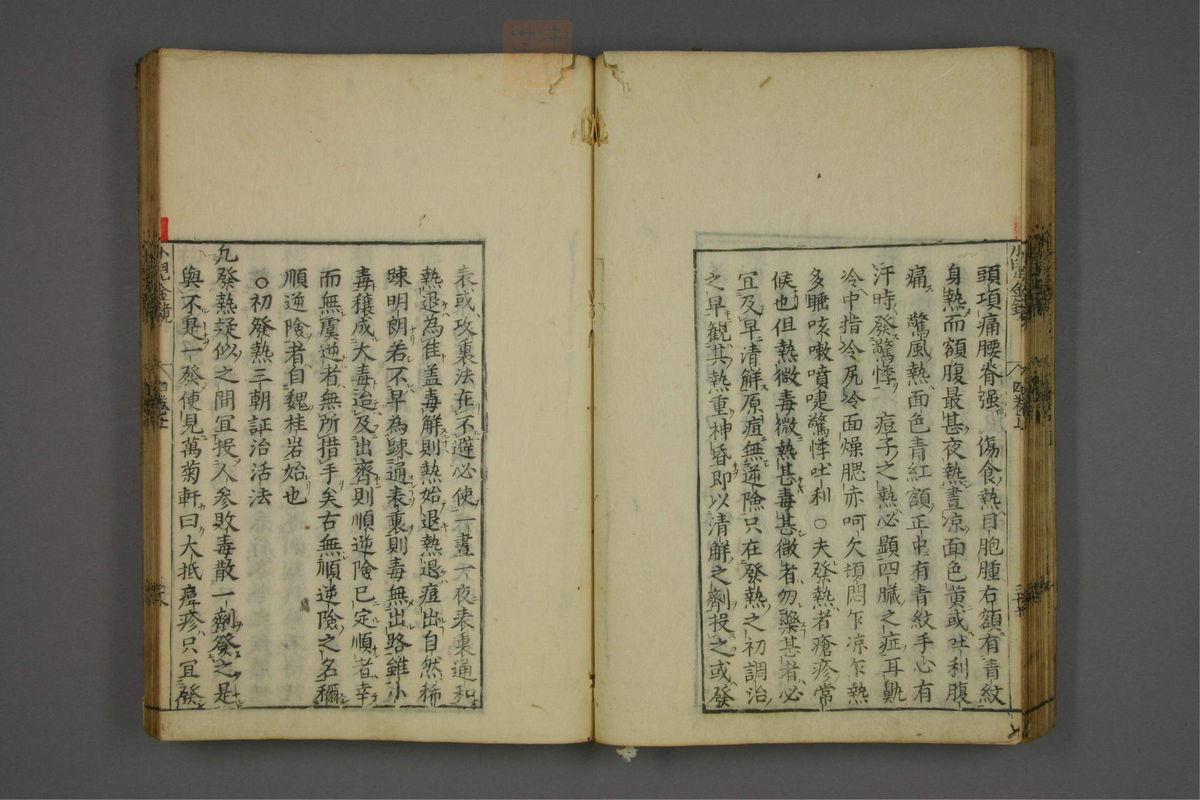 頭項痛腰脊强　傷食熱目胞腫右額有青紋
身熱而額腹最甚夜熱晝凉面色黄或吐利腹
痛　驚風熱面色青紅額正中有青紋手心有
汗時發驚悸　痘子之熱必顯四臟之症耳鼽
冷中指冷尻冷面燥腮赤呵欠頓悶乍凉乍熱
多睡咳嗽噴嚏驚悸吐利○夫發熱者瘡疹常
候也但熱微毒微熱甚毒甚微者勿藥甚者必
冝及早清解原痘無逆險只在發熱之初調治
之早觀其熱重神昏即以清解之劑投之或發
表或攻裏法在不避必使一晝一夜表裏通和
熱退為佳盖毒解則熱始退熱退痘出自然稀
踈明朗若不早為踈通表裏則毒無出路雖小
毒穰成大毒迨及出齊則順逆險已定順者幸
而無虞逆者無所措手矣古無順逆險之名稱
順逆險者自魏桂岩始也
○初發熱三朝証治活法
九發熱疑似之間冝投人參敗毒散一劑發之是
與不是一發使見萬菊軒曰大抵痘疹只冝發